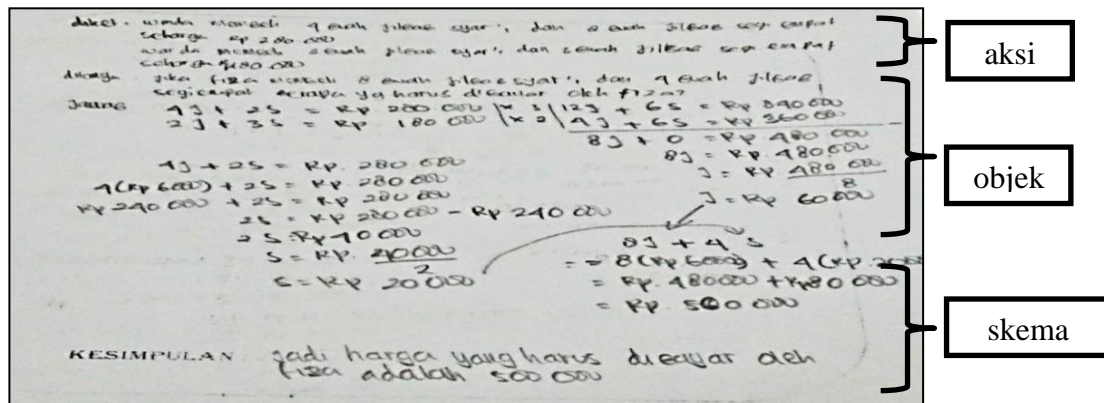 diket. winda membeli 4 buah jilbab syar'i, dan 2 buah jilbab segi empat
seharga Rp 280 000
warda membeli 2 buah jilbab syar'i dan 3 buah jilbab segi empat
seharga Rp 180 000
aksi
ditanya jika fiza membeli 8 buah jilbab syar'i, dan 4 buah jilbab
segiempat berapa yg harus dibayar oleh fiza?
Jawab 4J + 2S = Rp 280 000 | x 3 | 12J + 6S = Rp 840 000
2J + 3S = Rp 180 000 | x 2 | 4J + 6S = Rp 360 000
8J + 0 = Rp 480 000
4J + 2S = Rp. 280 000
8J = Rp. 480.000
4(Rp 6000) + 2S = Rp. 280 000
J = Rp 480 000
8
Rp 240 000 + 2S = Rp 280 000
J = Rp 60 000
objek
2S = Rp 280 000 - Rp 240 000
2S = Rp 40 000
8J + 4 S
S = Rp. 40000
2
= 8(Rp 6000) + 4(Rp.
S = Rp 20 000
= Rp. 480000 + Rp 80 000
= Rp. 560 000
skema
KESIMPULAN Jadi harga yang harus dibayar oleh
fiza adalah 500 000